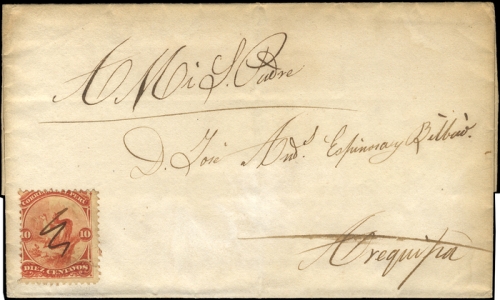 A Mi S. Padre
D. José And.s Espinosa y Bilbao.
Arequipa
CORREOS PERU
10 10
DIEZ CENTAVOS